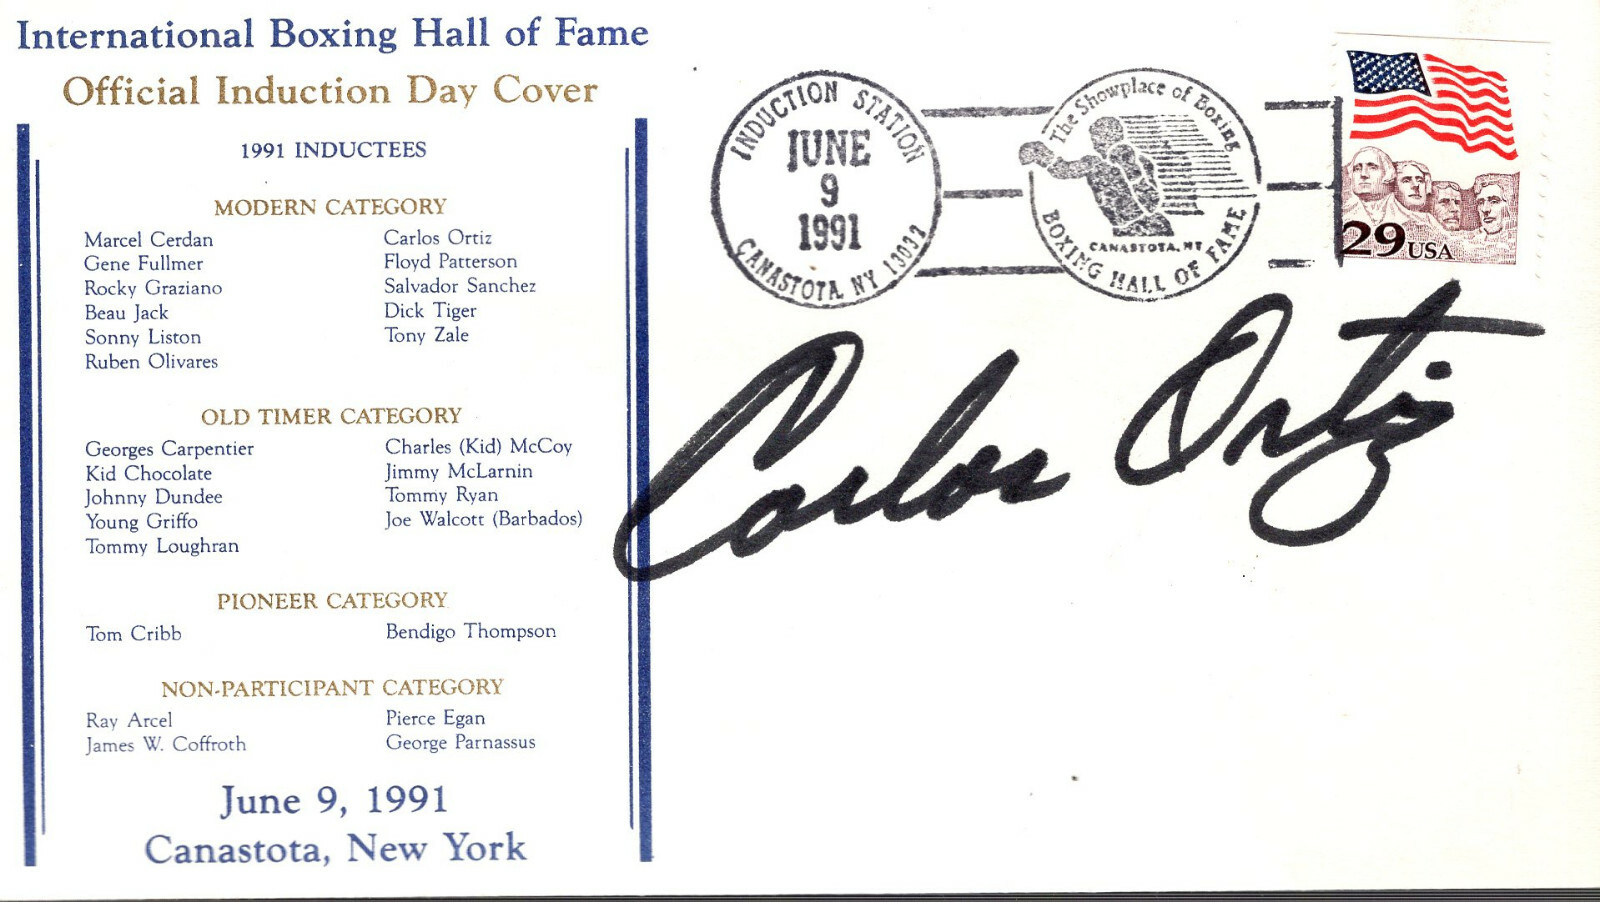 International Boxing Hall of Fame
Official Induction Day Cover
1991 INDUCTEES
MODERN CATEGORY
Marcel Cerdan
Gene Fullmer
Rocky Graziano
Beau Jack
Sonny Liston
Ruben Olivares
Carlos Ortiz
Floyd Patterson
Salvador Sanchez
Dick Tiger
Tony Zale
OLD TIMER CATEGORY
Georges Carpentier
Kid Chocolate
Johnny Dundee
Young Griffo
Tommy Loughran
Charles (Kid) McCoy
Jimmy McLarnin
Tommy Ryan
Joe Walcott (Barbados)
PIONEER CATEGORY
Tom Cribb
Bendigo Thompson
NON-PARTICIPANT CATEGORY
Ray Arcel
James W. Coffroth
Pierce Egan
George Parnassus
June 9, 1991
Canastota, New York
INDUCTION STATION
JUNE
9
1991
CANASTOTA NY 13032
The Showplace of Boxing
CANASTOTA, NY
BOXING HALL OF FAME
29 USA
Carlos Ortiz